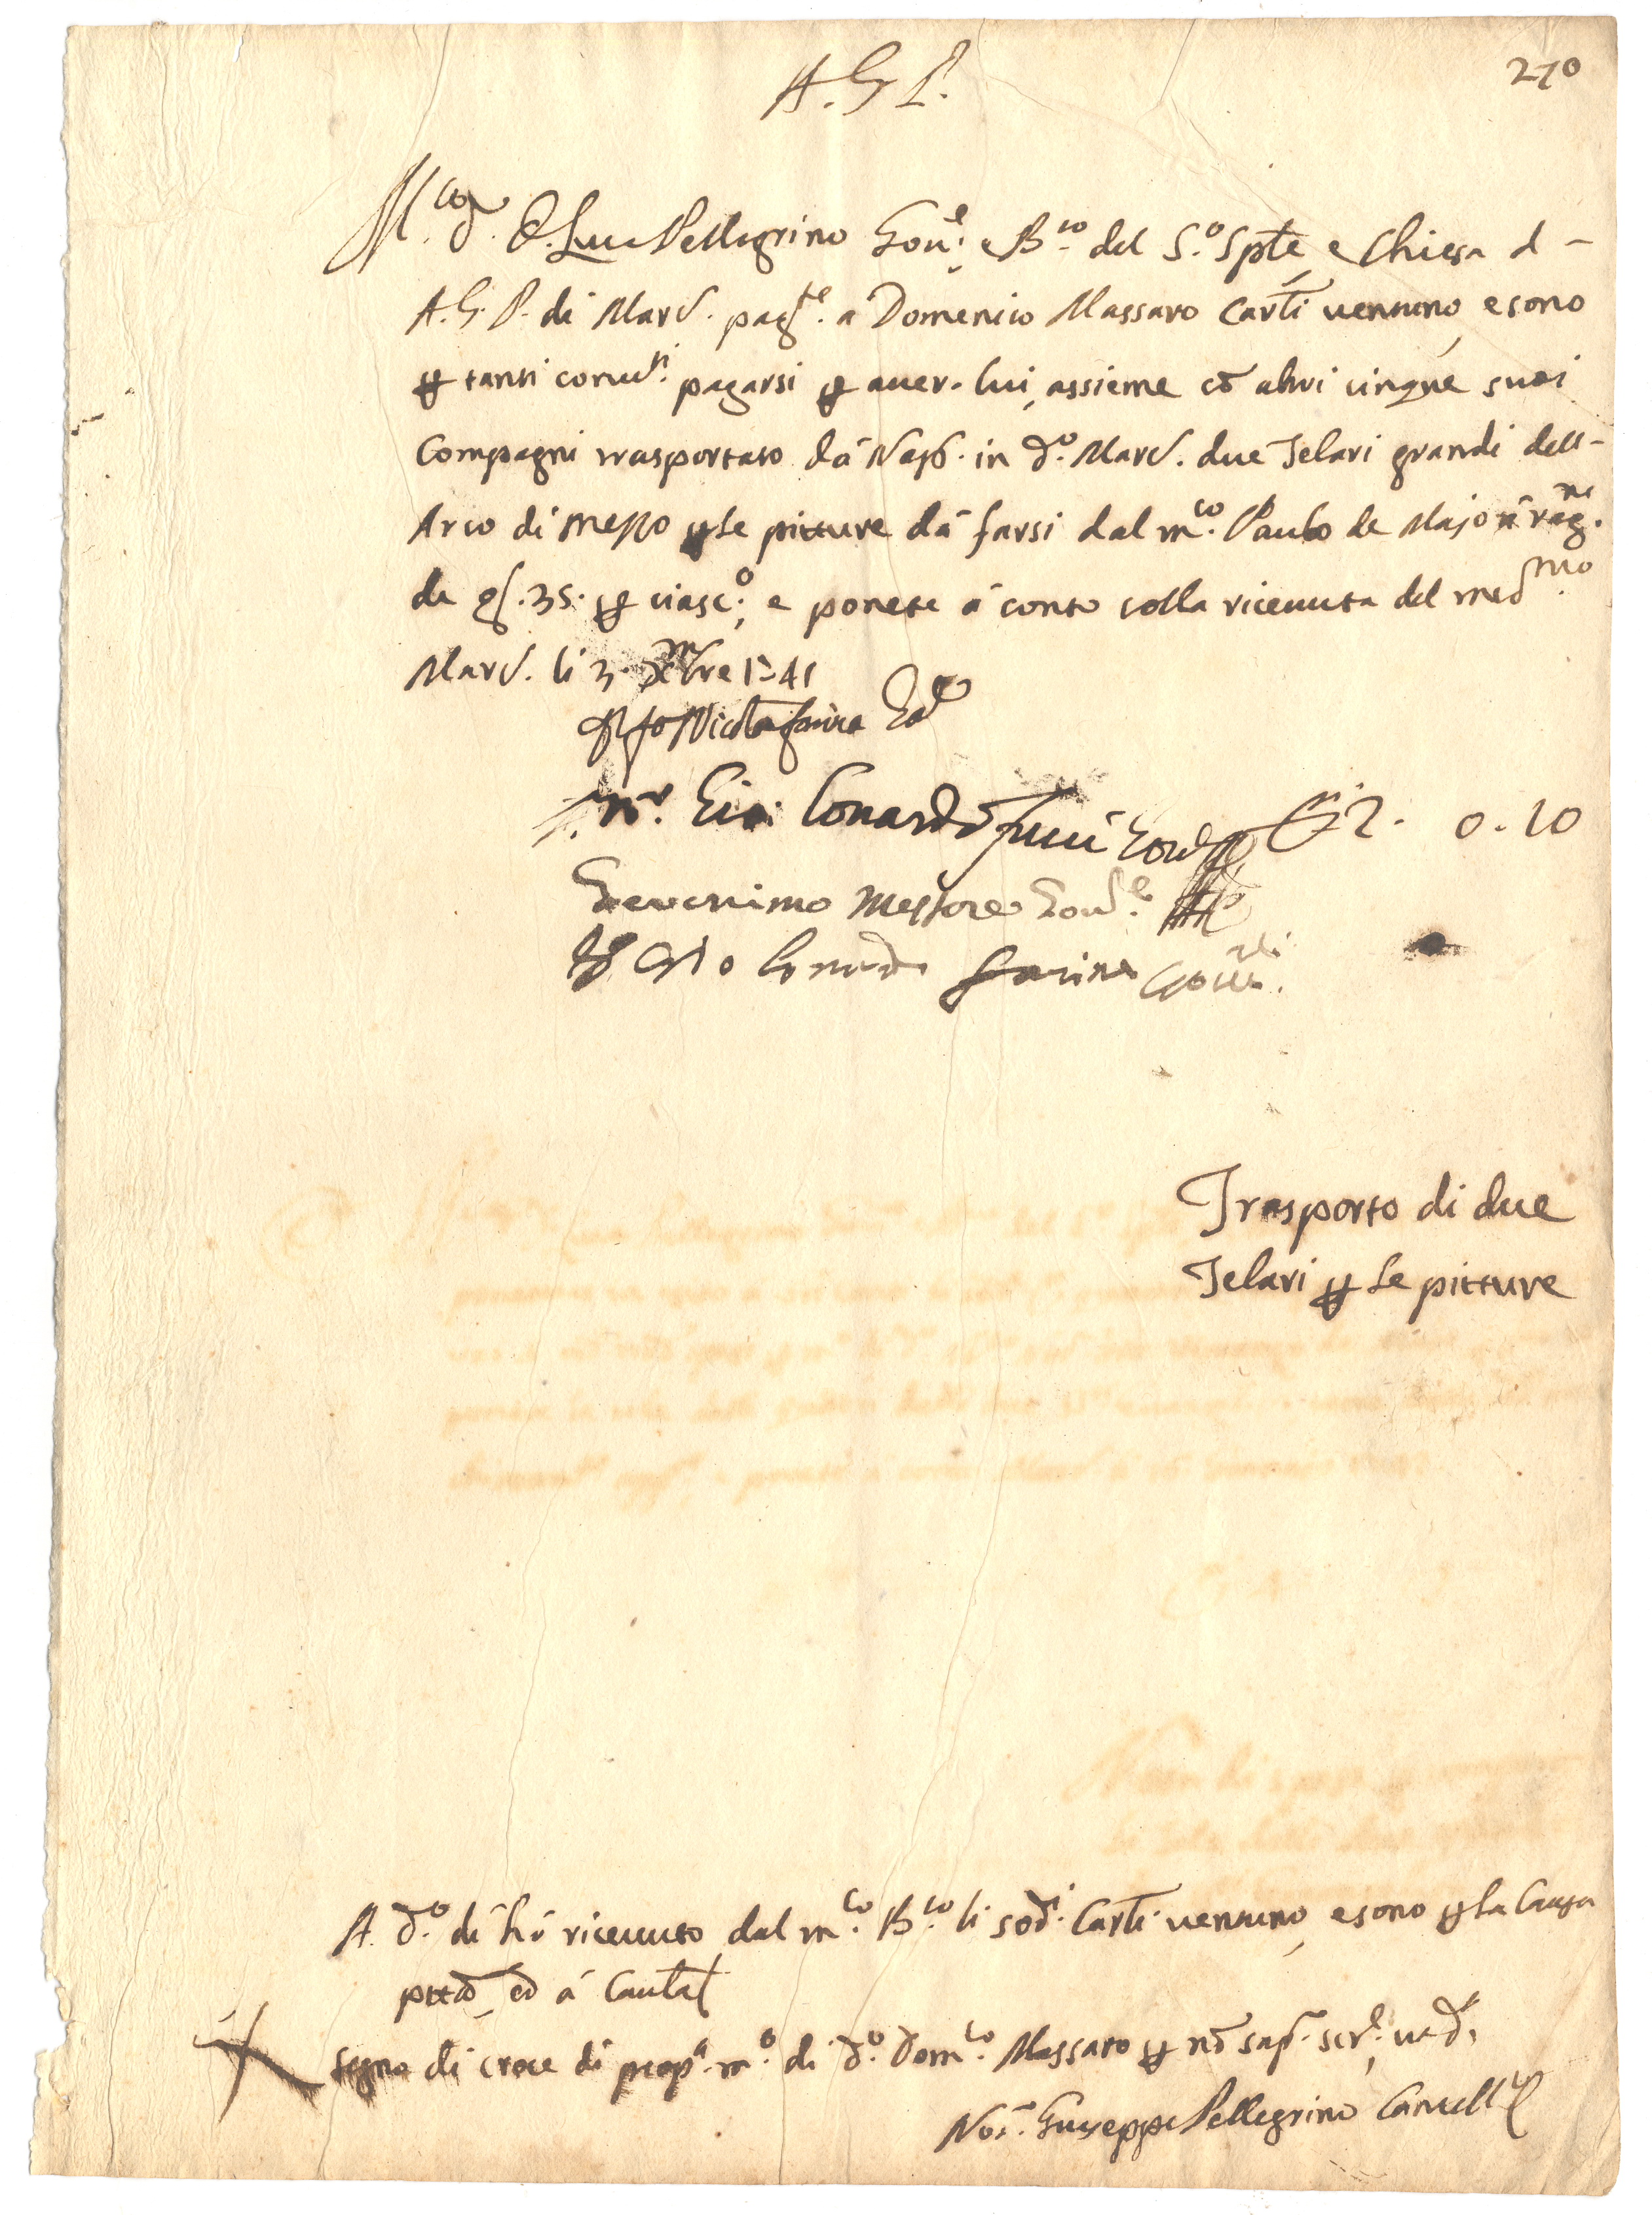 270
A.G.P.
M.co Sr. D. Luca Pellegrino Gov.e e B.ro del S.o Sple, e Chiesa d-
A.G.P. di Marc. pag.te a Domenico Massaro Carli ventuno, e sono
per tanti conv.ti pagarsi per aver lui, assieme cō altri cinque suoi
Compagni trasportato dà Nap. in d.o Marc. due Telari grandi dell-
Arco di mezzo per le pitture dà farsi dal m.co Paulo de Majo à rag.ne
de g. 35. per ciasc.o; e ponete à conto colla ricevuta del med.mo
Marc. li 3. Xmbre 1741
Farina
Lonardo
Geronimo
Lonardo Farina
2. 0. 10
Trasporto di due
Telari per le pitture
A. d.o dì hò ricevuto dal m.co B.ro li sod.i Carli ventuno, e sono per la Causa
ptta, ed à Cautla
Segno di croce di prop.a m.o di d.o Dom.co Massaro per nō sap. scr.e, ut d.r
Not. Giuseppe Pellegrino Cancell.re